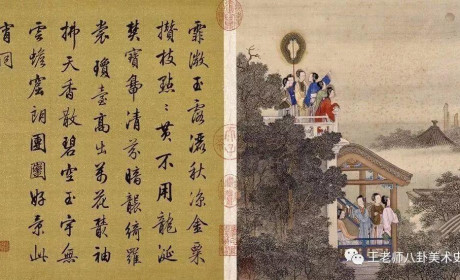 霏微玉露秋涼金粟
攢枝點點黃不用龍涎
爇寶清芬暗襲綺羅
裳瓊臺高出萬花叢袖
拂天香散碧空玉宇無
雲蟾窟朗團圞好景此
宵同
王老师八卦美术史